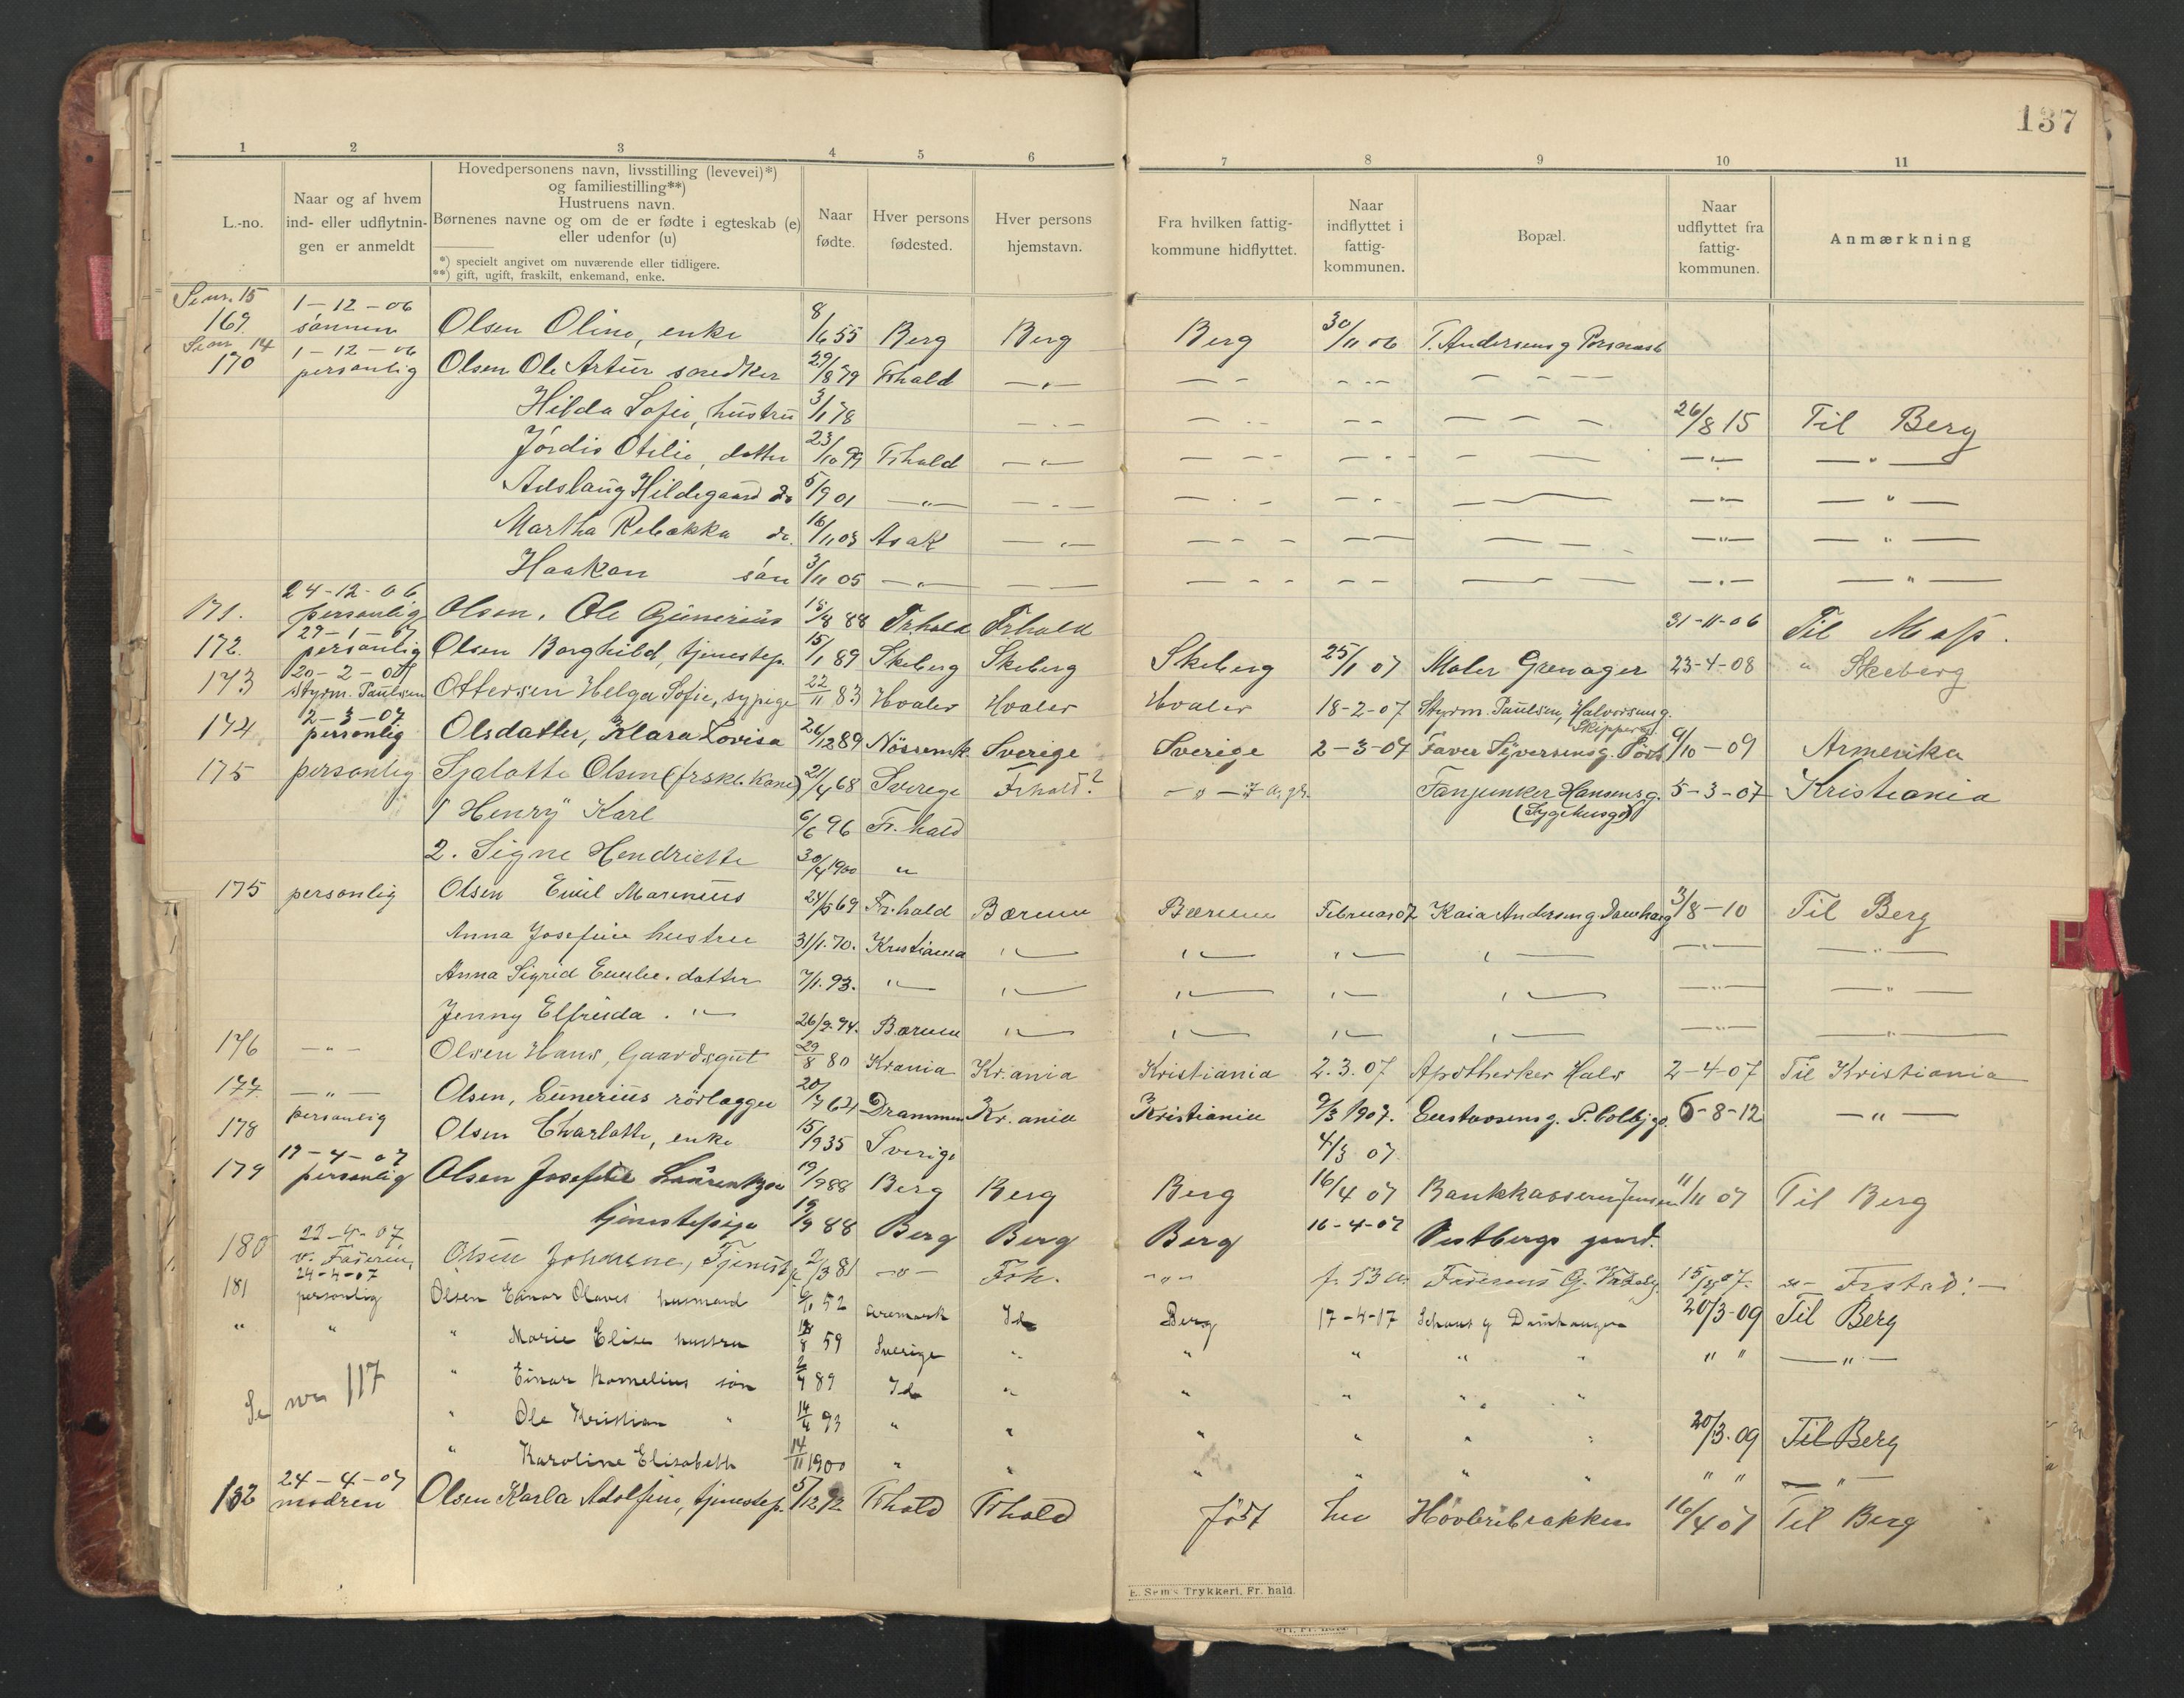 137
1 2 3 4 5 6 7 8 9 10 11
L.-no.
Naar og af hvem
ind- eller udflytnin-
gen er anmeldt
Hovedpersonens navn, livsstilling (levevei)*)
og familiestilling**)
Hustruens navn.
Børnenes navne og om de er fødte i egteskab (e)
eller udenfor (u)
*) specielt angivet om nuværende eller tidligere.
**) gift, ugift, fraskilt, enkemand, enke.
Naar
fødte.
Hver persons
fødested.
Hver persons
hjemstavn.
Fra hvilken fattig-
kommune hidflyttet.
Naar
indflyttet i
fattig-
kommunen.
Bopæl.
Naar
udflyttet fra
fattig-
kommunen.
Anmærkning
Se nr. 15 1-12-06
169. sønnen Olsen Oline, enke 8/6 55 Berg Berg Berg 30/11 06 T. Andersens g
Se nr 14 1-12-06
170 personlig Olsen Ole Artur snedker 29/8 79 Frhald —"— — - - -- — - - -
Hilda Sofie, hustru 3/11 78 — - — — - - — — — - - - 26/8 15 Til Berg
Jørdis Otilie, datter 23/10 99 Frhald —"— — - - - — - - — - — - —"— —"—
Aslaug Hildegaard do 5/9 01 —"— — - — — - - — - — — - —"— —"—
Martha Rebekka do. 16/11 03 Asak —"— — - - — — — - - —"— —"—
Haakon søn 3/11 05 —"— — — — - - - — - — - - —"— —"—
24-12-06
171. personlig Olsen, Ole Gunerius 15/8 88 Frhald Frhald 31-11-06 Til Moss.
29-1-07
172. personlig Olsen Borghild, tjenestep. 15/1 89 Skeberg Skeberg Skeberg 25/1 07 Maler Grenager 23-4-08 " Skeberg
20-2-07
173 Styrm. Paulsen Ottersen Helga Sofie, sypige 22/11 83 Hvaler Hvaler Hvaler 18-2-07 Styrm. Paulsen, Halvorsens g.
2-3-07
174. personlig Olsdatter, Klara Lovisa 26/12 89 Nössemk. Sverige Sverige 2-3-07 Faver Syversens g. 9/10-09 Armerika
175 personlig Sjalotte Olsen (frskl. Kone) 21/4 68 Sverege Frhald? —"— 7 a. Fanjunker Hansens g. 5-3-07 Kristiania
(Sygehusg)
1 Henry Karl 6/6 96 Fr.hald
2. Signe Hendriette 30/4 1900 "
175 personlig Olsen Emil Marinius 24/5 69 Fr.hald Bærum Bærum Februar 07 Kaia Andersens g. Damhaug 3/8-10 Til Berg
Anna Josefine hustru 31/1. 70. Kristiania "— "— "— "— —"— —"—
Anna Sigrid Emilie. datter 7/1. 93. "— "— "— "— "— —"— —"—
Jenny Elfrida. "— 26/9. 94. Bærum "— "— "— "— —"— —"—
176 —"— Olsen Hans, Gaardsgut 29/8 80 Krania Kr.ania Kristiania 2.3.07 Apotheker Hals 2-4-07 Til Kristiania
177. —"— Olsen, Gunerius rørlægger 20/7 64 Drammen Kr.ania Kristiania 9/3 1907. Gustavsens g. P. Colbjg. 6-8-12 —"—
178 personlig Olsen Charlotte, enke 15/9 35 Sverige 4/3 07
17-4-07
179 personlig Olsen Josefine Laurentze 19/9 88 Berg Berg Berg 16/4 07 Bankkasserer Jensen 11/11 07 Til Berg
tjenestepige 19/9 88 Berg Berg Berg 16-4-07 Vestbergs gaard.
22-4-07
180 Olsen Johanne, Tjenest 2/3 81 —"— Frh. -"- f. 13 a. 15 07. Frstad.
24-4-07
181 personlig Olsen Einar Olaves husmand 6/11 52 Aremark Id Berg 17-4-17 Schous g Damhaugen 20/3-09 Til Berg
" " " Marie Elise hustru 8 59 Sverige " " " " " " " —"—
Se nr 117 " Einar Kornelius søn 2/7 89 Id " " " " "
" Ole Kristian " 14/4 93 " " " " " " 20/3.09 Til Berg
" Karoline Elisabeth 14/11 1900 " " " " " " " " —"—
24-4-07
182 modren Olsen Karla Adolfine, tjenestep. 5/12 92 Frhald Frhald født her Hovleribrakken 16/4 07 Til Berg
E. Sem's Trykkeri, Fr. hald.